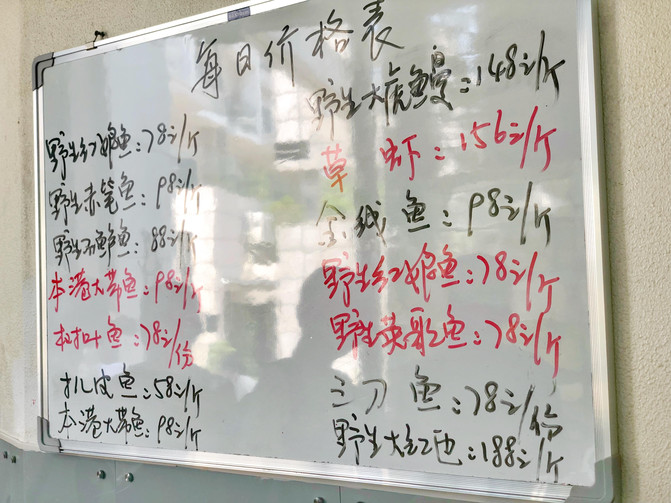 每日价格表
野生红娘鱼:78元/斤
野生赤笔鱼:98元/斤
野生石鲈鱼:88元/斤
本港大带鱼:98元/斤
松叶鱼:78元/份
扒皮鱼:58元/斤
本港大带鱼:98元/斤
野生大虎鳗:148元/斤
草虾:156元/斤
金线鱼:98元/斤
野生红娘鱼:78元/斤
野生英歌鱼:78元/斤
三刀鱼:78元/份
野生大红:188元/斤